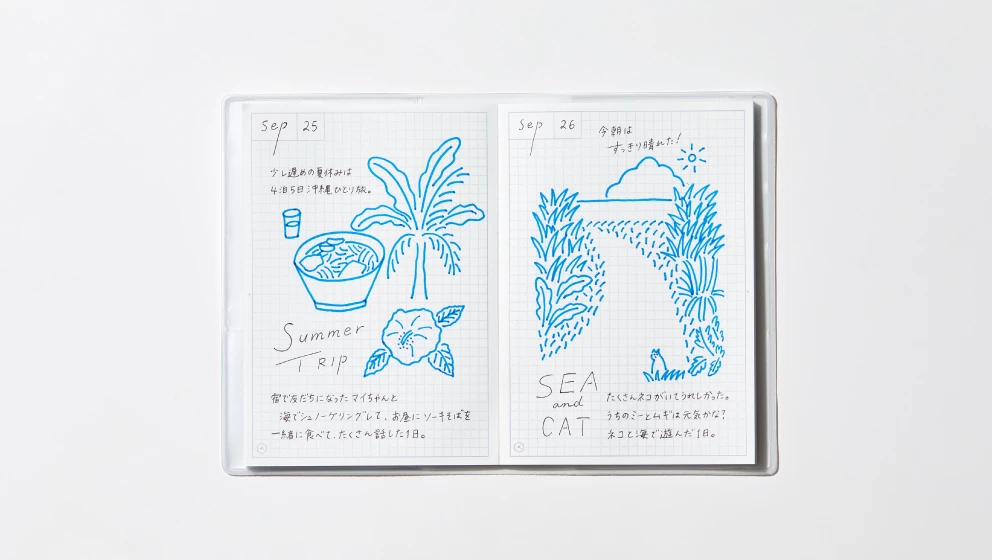 Sep 25
少し遅めの夏休みは
4泊5日沖縄ひとり旅。
Summer
TRIP
宿で友だちになったマイちゃんと
海でシュノーケリングして、お昼にソーキそばを
一緒に食べて、たくさん話した1日。
Sep 26
今朝は
すっきり晴れた!
SEA
and
CAT
たくさんネコがいてうれしかった。
うちのミーとムギは元気かな?
ネコと海で遊んだ1日。